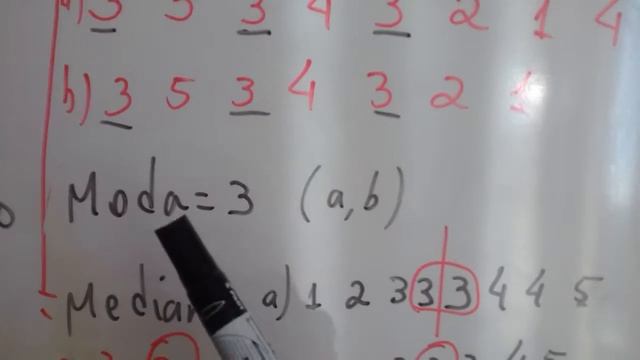 a) 3 5 3 4 3 2 1 4
b) 3 5 3 4 3 2 1
Moda = 3 (a,b)
a) 1 2 3 3 3 4 4 5